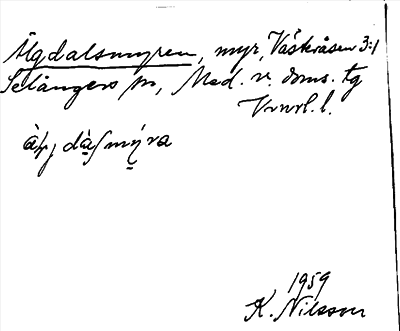 Älgdalsmyren, myr, Västeråsen 3:1
Selångers sn, Med. v. doms. tg
Vnrl. l.
1959
K. Nilsson